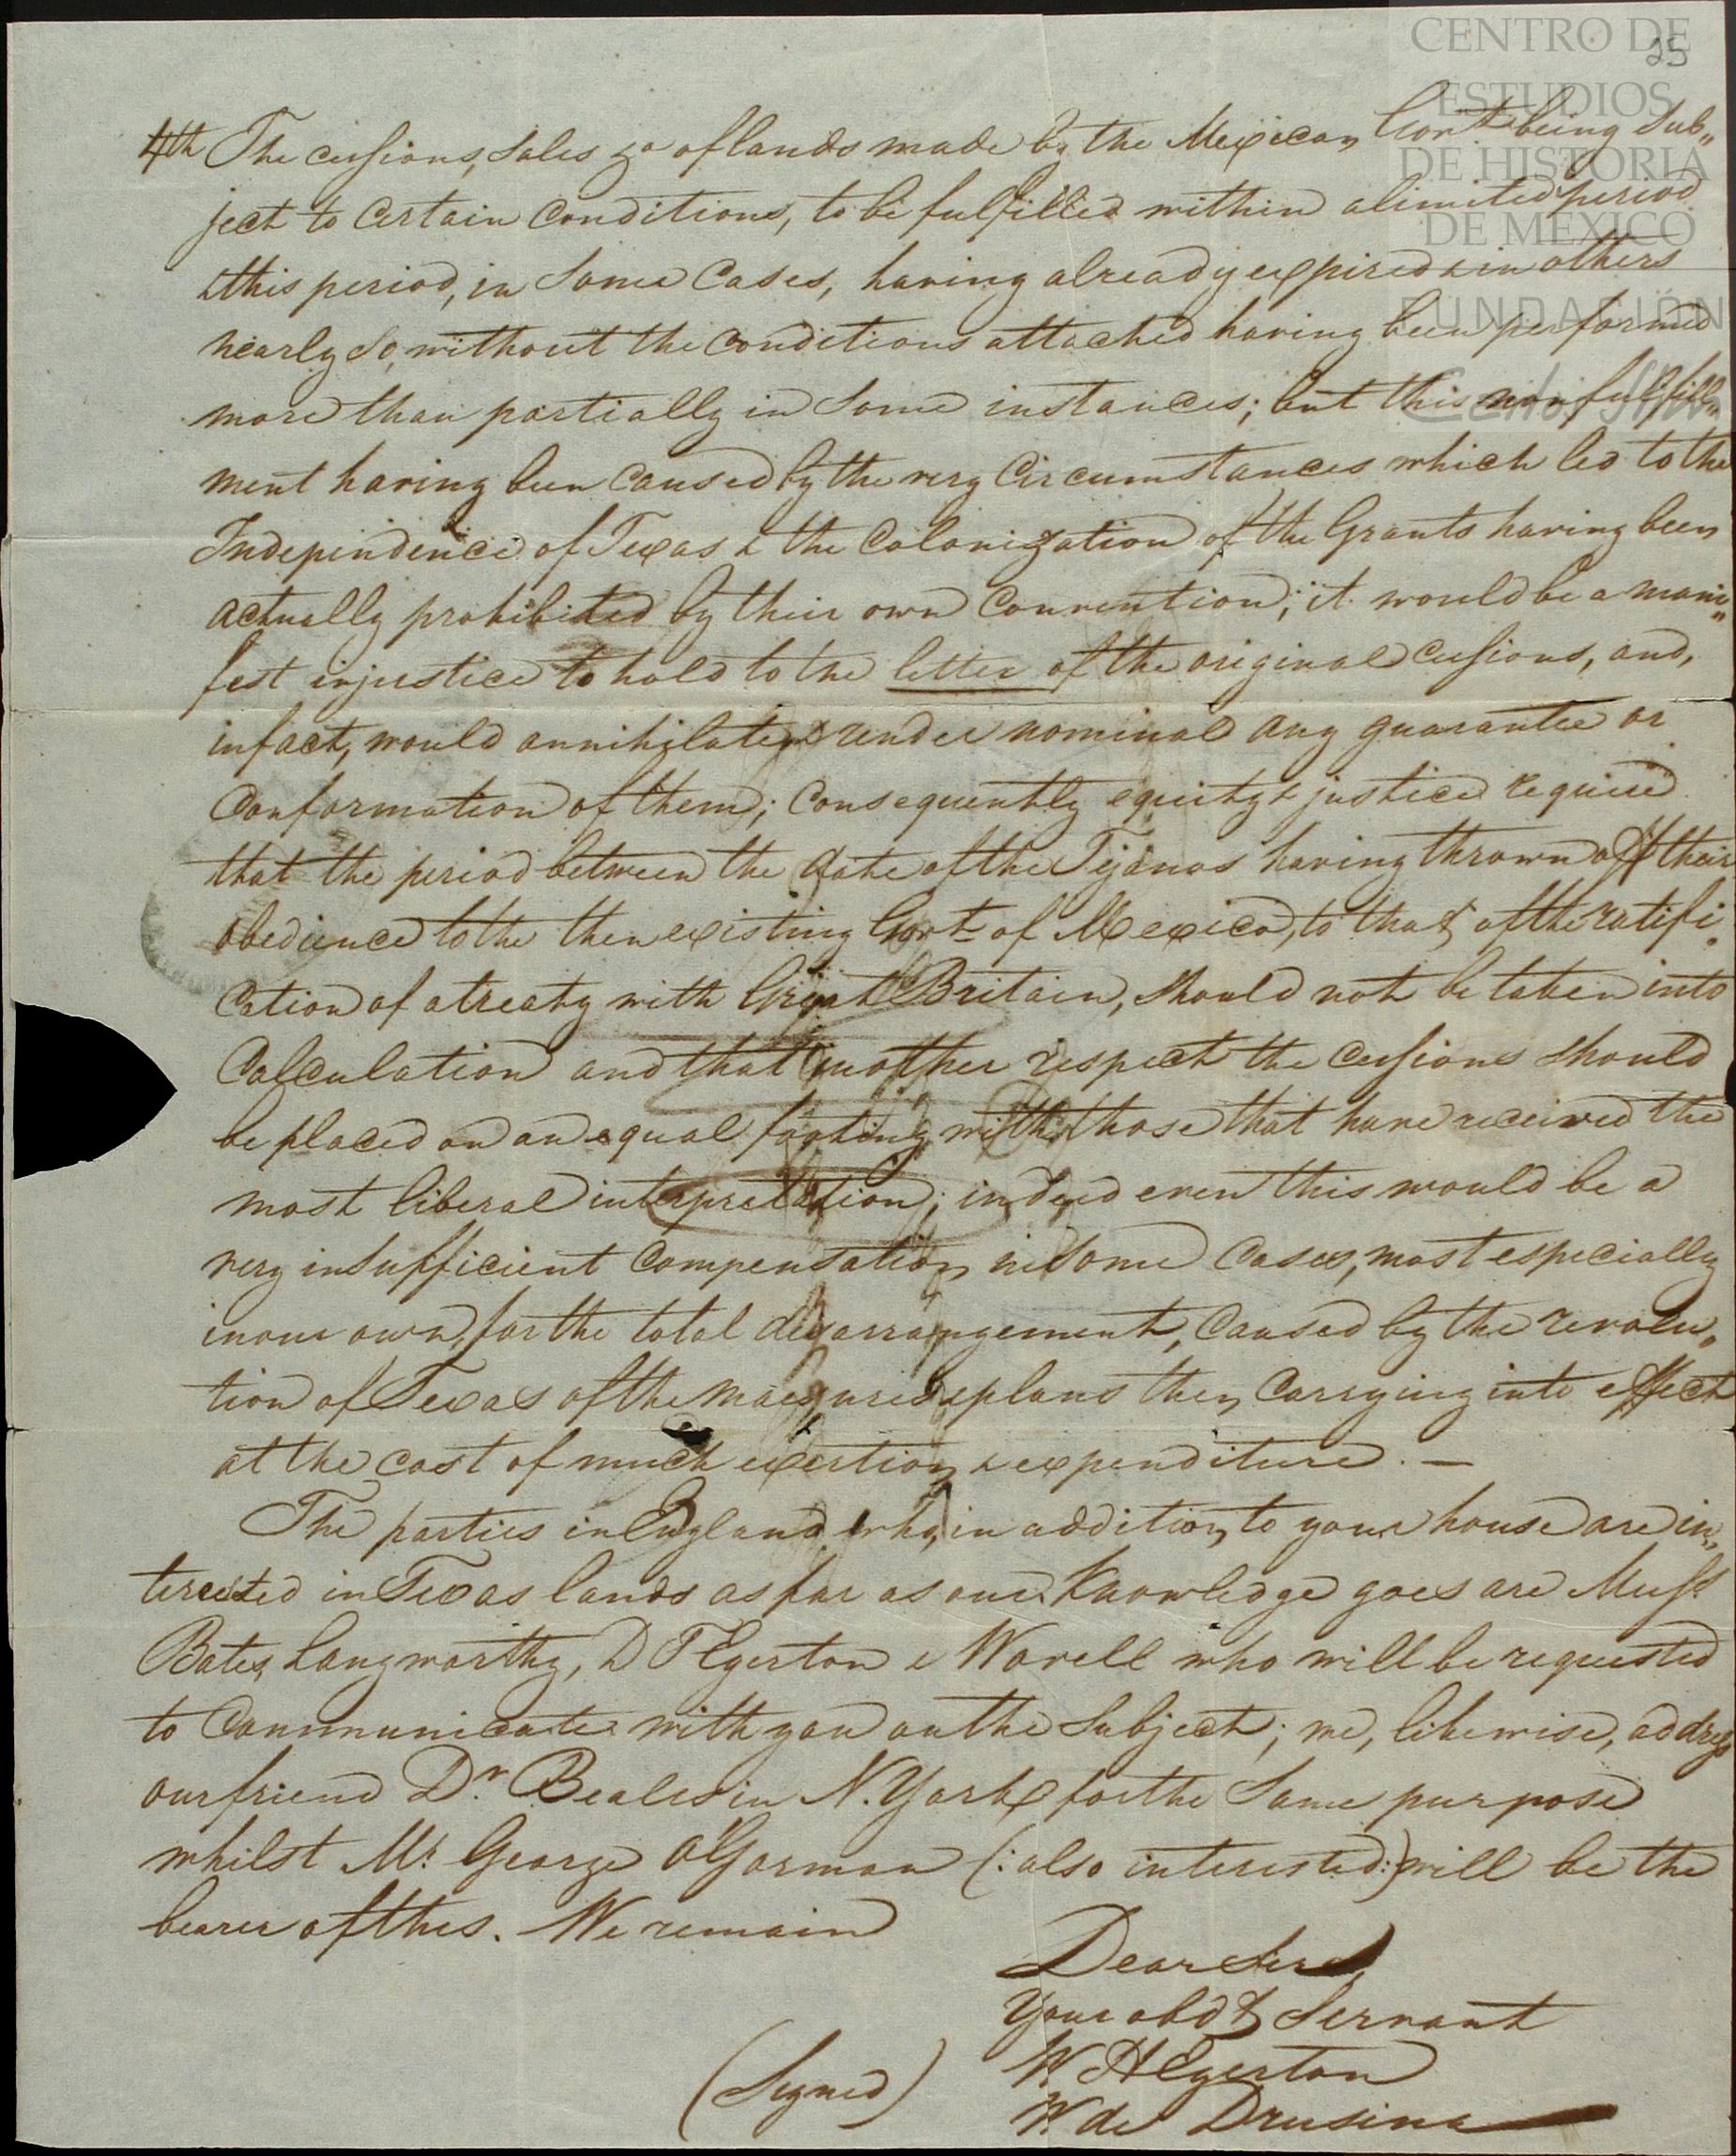 CENTRO DE
25
ESTUDIOS
DE HISTORIA
DE MEXICO
FUNDACIÓN
4th The cessions, sales &a of lands made by the Mexican Govt being sub„
ject to certain conditions, to be fulfilled within a limited period
& this period, in some cases, having already expired & in others
nearly so, without the conditions attached having been performed
more than partially in some instances; but this non fulfill„
ment having been caused by the very circumstances which led to the
Independence of Texas & the Colonization of the Grants having been
actually prohibited by their own Convention; it would be a mani„
fest injustice to hold to the letter of the original cessions, and,
in fact, would annihilate & render nominal any guarantee or
Conformation of them; Consequently equity & justice require
that the period between the date of the Tejanos having thrown off their
obedience to the then existing Govt of Mexico, to that of the ratifi„
cation of a treaty with Great Britain, should not be taken into
Calculation and that in other respect the cessions should
be placed on an equal footing with those that have received the
most liberal interpretation; indeed even this would be a
very insufficient compensation in some cases, most especially
in our own, for the total disarrangement, caused by the revolu„
tion of Texas of the measured plans then carrying into effect
at the cost of much exertion & expenditure. —
The parties in England who, in addition to your house are in„
terested in Texas lands as far as our knowledge goes are Messs
Bates, Langworthy, D T Egerton & Worell who will be requested
to Communicate with you on the subject; we, likewise, address
our friend Dr. Beales in N. York for the same purpose
whilst Mr. George O'Gorman (: also interested :) will be the
bearer of this. We remain
Dear Sirs,
Your obdt Servant
(Signed) W. H Egerton
W de Drusina